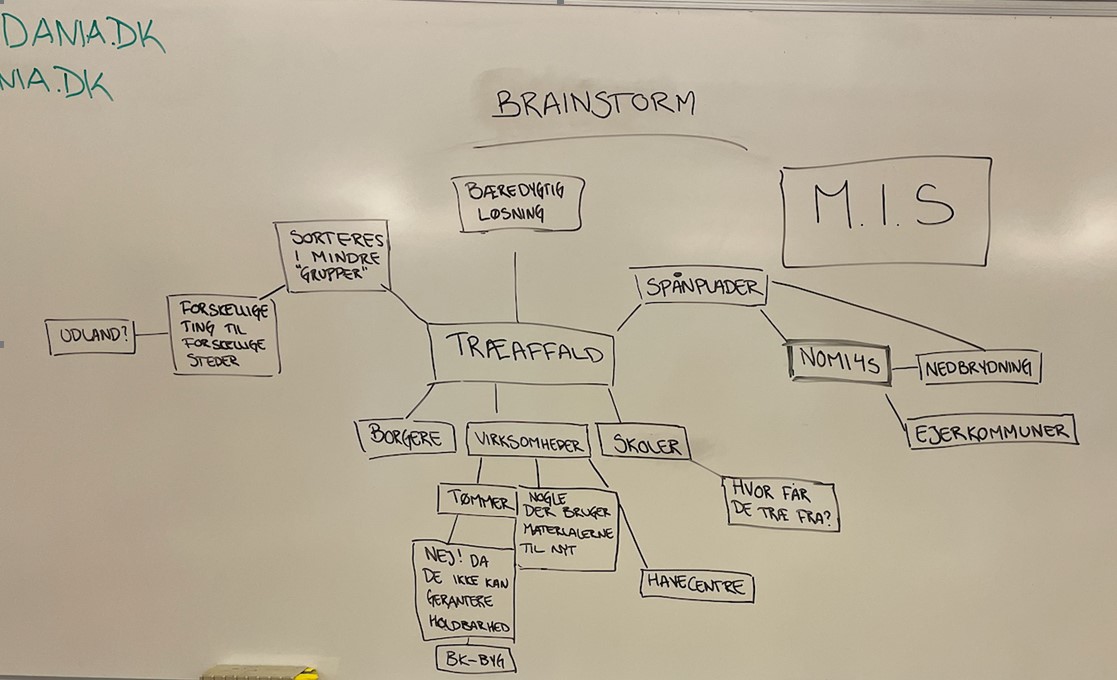 DANIA.DK
NIA.DK
BRAINSTORM
BÆREDYGTIG
LØSNING
M.I.S
SORTERES
I MINDRE
"GRUPPER"
SPÅNPLADER
FORSKELLIGE
TING TIL
FORSKELLIGE
STEDER
UDLAND?
TRÆAFFALD
NOMI4S
NEDBRYDNING
EJERKOMMUNER
BORGERE
VIRKSOMHEDER
SKOLER
HVOR FÅR
DE TRÆ FRA?
TØMMER
NOGLE
DER BRUGER
MATERIALERNE
TIL NYT
NEJ! DA
DE IKKE KAN
GERANTERE
HOLDBARHED
HAVECENTRE
BK-BYG